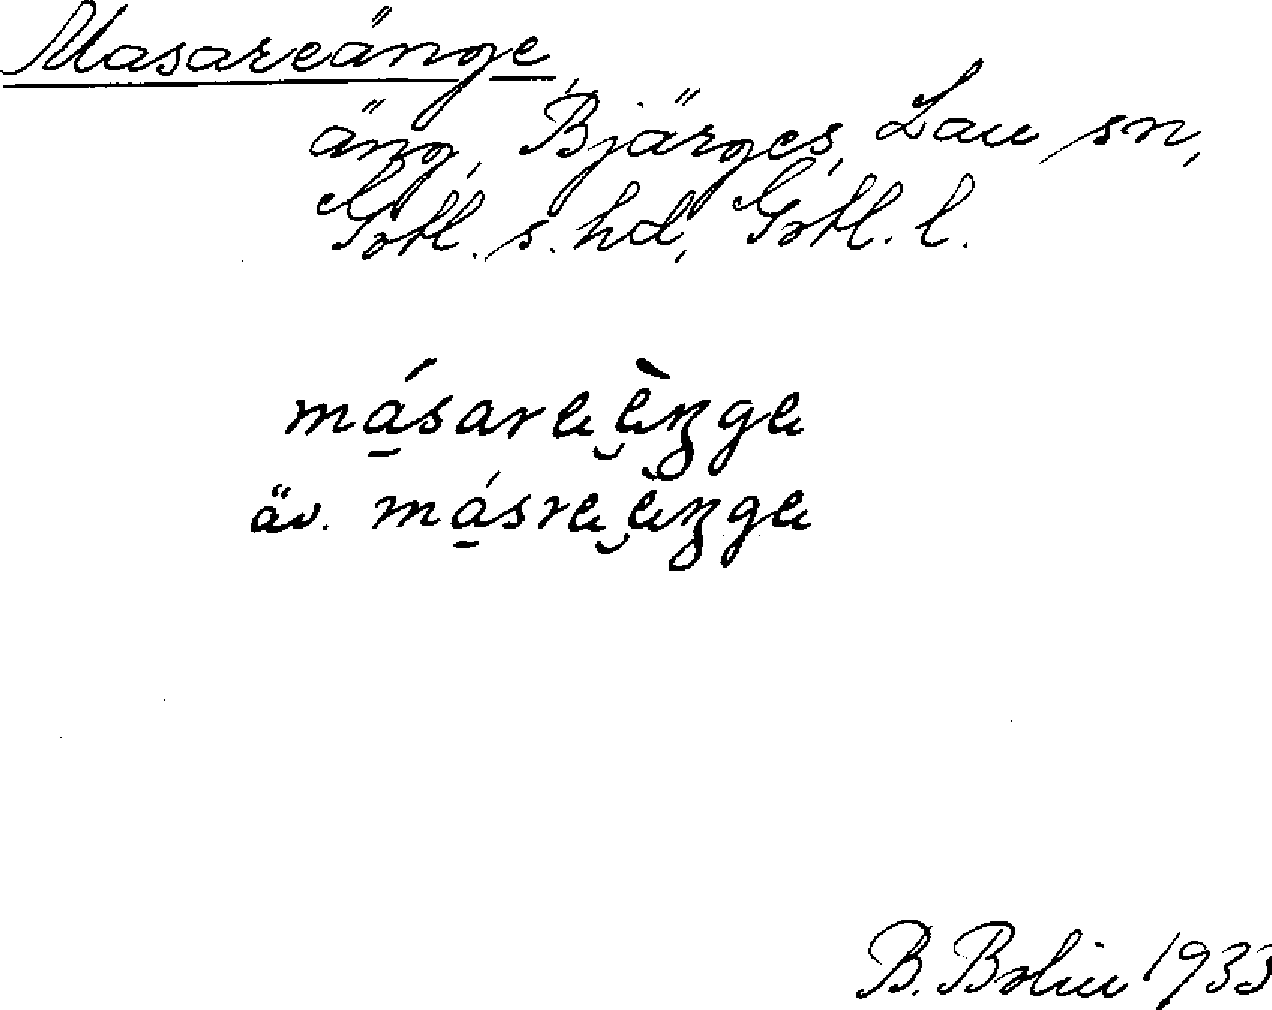 Masareänge,
äng, Bjärges, Lau sn,
Gotl. s. hd, Gotl. l.
másareèŋge
äv. másreèŋge
B. Bolin 1933